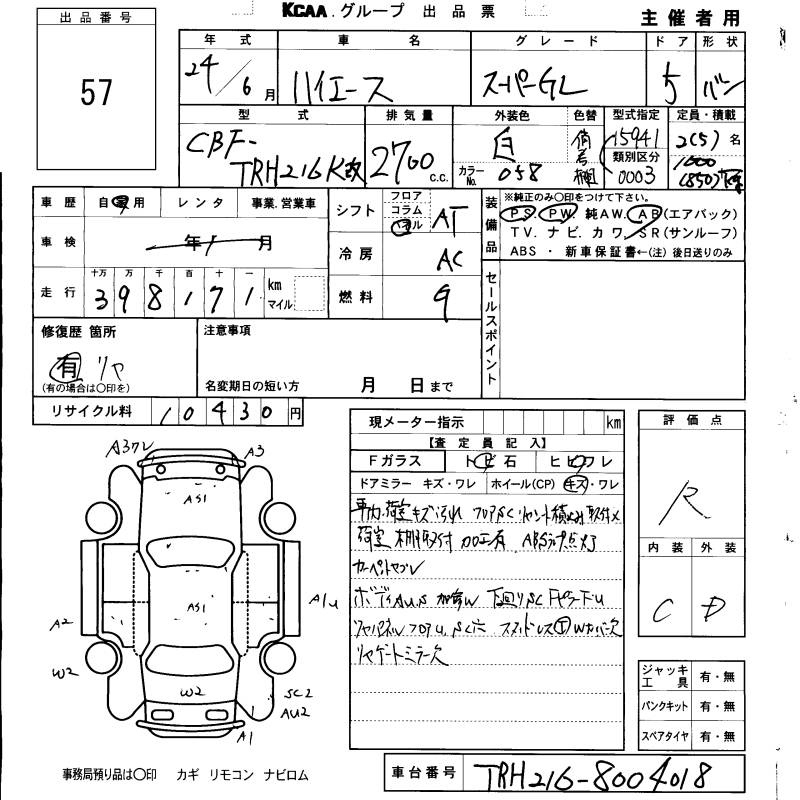 KCAA.グループ 出品票
主催者用
出品番号
57
年式 車名 グレード ドア 形状
24/6月 ハイエース スーパーGL 5 バン
型式 排気量 外装色 色替 型式指定 定員・積載
CBF-TRH216K改 2700 c.c. 白 カラーNo. 058 有 15941 2(5)名
類別区分
0003 1000 (850)
車歴 自家用 レンタ 事業.営業車
車検 年 月
走行 十万 万 千 百 十 一 km マイル
3 9 8 1 7 1
シフト フロア コラム AT
冷房 AC
燃料 G
装備品 ※純正のみ○印をつけて下さい。
PS. PW 純AW. AB(エアバック)
TV. ナビ. カワ. SR(サンルーフ)
ABS ・ 新車保証書←(注)後日送りのみ
セールスポイント
修復歴 箇所
有 リヤ
(有の場合は○印を)
注意事項
名変期日の短い方 月 日まで
リサイクル料 10430円
現メーター指示 km
【査定員記入】
Fガラス トビ石 ヒビワレ
ドアミラー キズ・ワレ ホイール(CP) キズ・ワレ
車内.荷室キズ汚れ フロアSC
荷室 棚取付 加工有 ABSランプ点灯
カーペットヤブレ
ボディAU.S 下回りSC
リヤゲートミラー欠
評価点
R
内装 外装
C D
ジャッキ工具 有・無
パンクキット 有・無
スペアタイヤ 有・無
A3ワレ
A3
AS1
AS1
A1U
A2
W2
W2
SC2
AU2
A1
事務局預り品は○印 カギ リモコン ナビロム
車台番号 TRH216-8004018